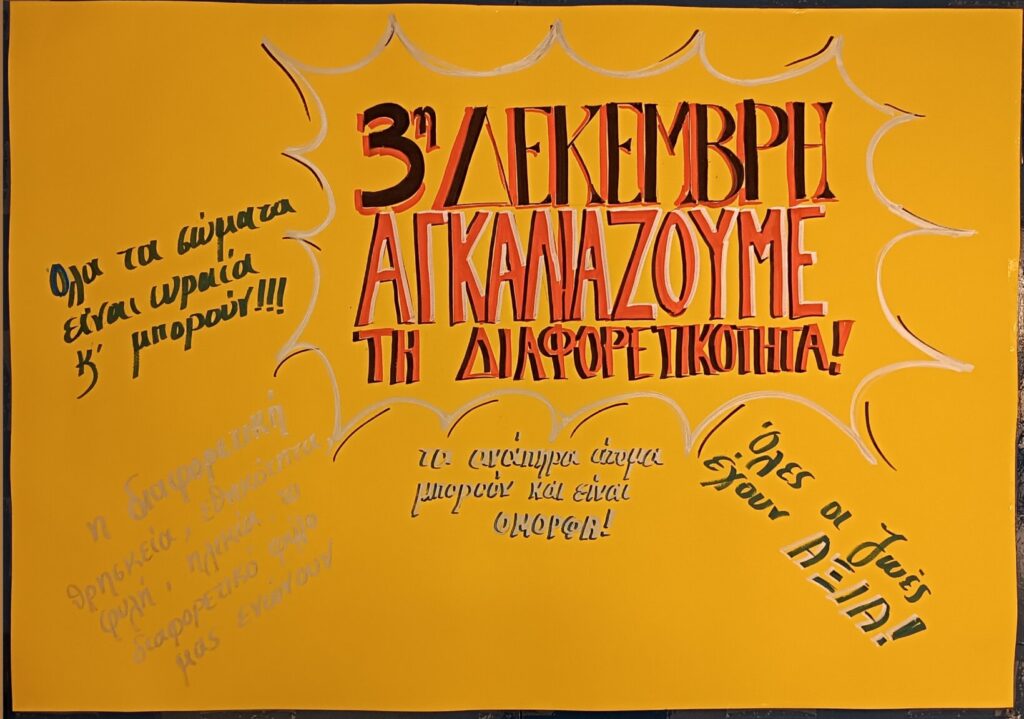 3η ΔΕΚΕΜΒΡΗ
ΑΓΚΑΛΙΑΖΟΥΜΕ
ΤΗ ΔΙΑΦΟΡΕΤΙΚΟΤΗΤΑ!
Όλα τα σώματα
είναι ωραία
κ' μπορούν!!!
η διαφορετική
θρησκεία, εθνικότητα,
φυλή, ηλικία, το
διαφορετικό φύλο
μας ενώνουν
τα ανάπηρα άτομα
μπορούν και είναι
ΟΜΟΡΦΑ!
Όλες οι ζωές
έχουν
ΑΞΙΑ!